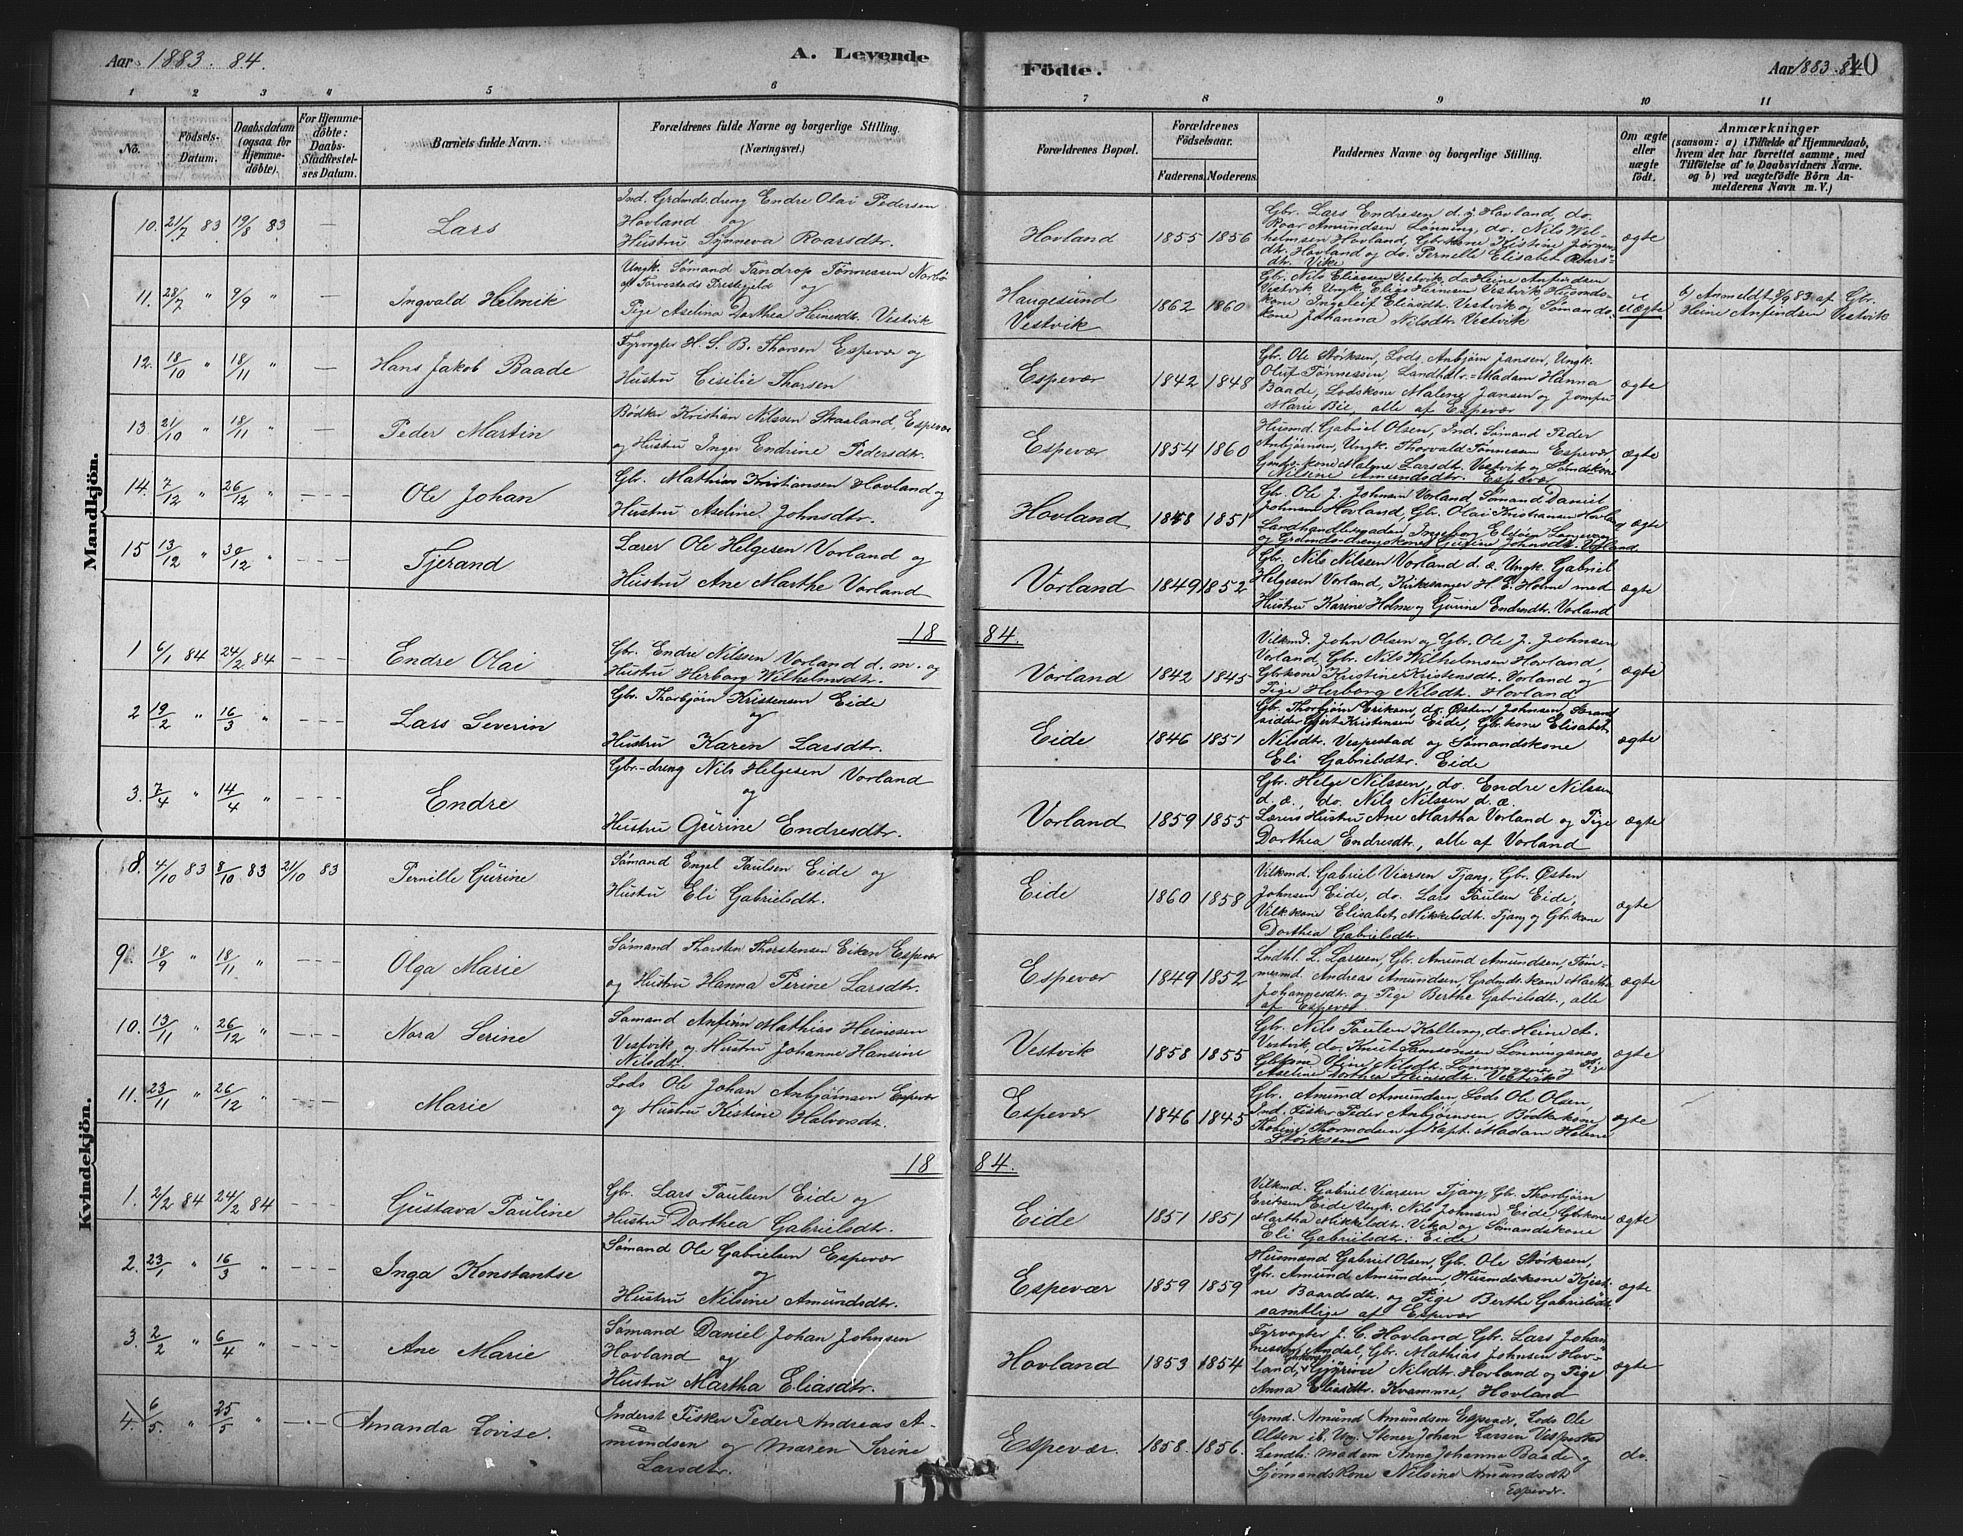 Aar 1883. 84.
A. Levende
Födte.
Aar 1883. 84.
10
1 2 3 4 5 6 7 8 9 10 11
No.
Födsels-
Datum.
Daabsdatum
(ogsaa for
Hjemme-
döbte).
For Hjemme-
döbte:
Daabs-
Stadfæstel-
ses Datum.
Barnets fulde Navn.
Forældrenes fulde Navne og borgerlige Stilling.
(Næringsvei.)
Forældrenes Bopæl.
Forældrenes
Födselsaar.
Faderens. Moderens.
Faddernes Navne og borgerlige Stilling.
Om ægte
eller
uægte
födt.
Anmærkninger
(saasom: a) i Tilfælde af Hjemmedaab,
hvem der har forrettet samme, med
Tilföielse af to Daabsvidners Navne.
og b) ved uægtefödte Börn An-
melderens Navn m. V.)
Mandkjön.
10. 21/7 83 19/8 83 — Lars
Ind. Grdmds.dreng Endre Olai Pedersen
Hovland og
Hustru Synneva Roarsdtr.
Hovland 1855 1856
Gbr. Lars Endresen d. y. Hovland, do.
Roar Amundsen Lönning, do. Nils Wil-
helmsen Hovland, Gbrkone Kristine Jörgens
dtr. Hovland og do. Pernelle Elisabet Roars-
dtr. Vike
ægte
11. 28/7 " 9/9 " — Ingvald Helmik
Ungk. Sømand Tandrop Tönnessen
af Torvestads Prestegjeld og
Pige Aselina Dorthea Heinesdtr. Vestvik
Haugesund
Vestvik
1862 1860
Gbr. Nils Eliassen Vestvik, do Heine Anfindsen
Vestvik Ungk. Elias Heinesen Vestvik Husmds-
kone Ingeleif Eliasdtr. Vestvik og Sömands-
kone Johanna Nilsdtr. Vestvik
uægte
b) Anmeldt 8/9 83 af Gbr.
Heine Anfindsen Vestvik
12. 18/10 " 18/11 " — Hans Jakob Baade
Fyrvogter H. S. B. Thorsen Espevær og
Hustru Cisilie Thorsen
Espevær 1842 1848
Gbr. Ole Störksen, Lods Anbjörn Jansen, Ungk.
Oluf Tönnessen, Landhdlr.=Madam Hanna
Baade, Lodskone Malene Jansen og Jomfru
Marie Bie, alle af Espevær
ægte
13 21/10 " 18/11 " — Peder Martin
Bödker Kristian Nilssen Skaaland, Espevær
og Hustru Inger Endrine Pedersdtr.
Espevær 1854 1860
Husmd. Gabriel Olsen, Ind. Sömand Peder
Anbjörnsen, Ungk. Thorvald Tönnessen Espevær,
Gmds.kone Malene Larsdtr. Vestvik og Sömdskone
Nilsine Amundsdtr. Espevær
ægte
14. 7/12 " 26/12 " --- Ole Johan
Gbr. Mathias Kristiansen Hovland og
Hustru Aseline Johnsdtr.
Hovland 1848 1851
Gbr. Ole J. Johnsen Vorland, Sömand Daniel
Johnsen Hovland, Gbr. Olai Kristiansen Hovland
og Grdmds.drengskone Gurine Johnsdtr. Vorland
ægte
15 13/12 " 30/12 " --- Tjerand
Lærer Ole Helgesen Vorland og
Hustru Ane Marthe Vorland
Vorland 1849 1852
Gbr. Nils Nilssen Vorland d. æ. Ungk. Gabriel
Helgesen Vorland, Kirkesanger H. E. Holme med
Hustru Karine Holme og Gurine Endresdtr. Vorland
ægte
18 84.
1 6/1 84 24/2 84 --- Endre Olai
Gbr. Endre Nilssen Vorland d. m. og
Hustru Herborg Wilhelmsdtr.
Vorland 1842 1845
Vilkmd. John Olsen og Gbr. Ole J. Johnsen
Vorland, Gbr. Nils Wilhelmsen Hovland,
Gbrkone Kristine Kristensdtr. Vorland og
Pige Herborg Nilsdtr. Hovland
ægte
2 19/2 " 16/3 " --- Lars Severin
Gbr. Thorbjörn Kristensen Eide
og
Hustru Karen Larsdtr.
Eide 1846 1851
Gbr. Thorbjörn Eriksen, do. Østen Johnsen, Strand
sidder Gjert Kristensen Eide, Gbr.kone Elisabet
Nilsdtr. Vespestad og Sömandskone
Eli Gabrielsdtr. Eide
ægte
3. 7/4 " 14/4 " --- Endre
Gbr.-dreng Nils Helgesen Vorland
og
Hustru Gurine Endresdtr.
Vorland 1859 1855
Gbr. Helge Nilssen, do. Endre Nilssen
d. æ., do. Nils Nilssen d. æ.
Lærers Hustru Ane Martha Vorland og Pige
Dorthea Endresdtr., alle af Vorland
ægte
Kvindekjön.
8. 4/10 83 8/10 83 21/10 83 Pernille Gurine
Sömand Engel Paulsen Eide og
Hustru Eli Gabrielsdtr.
Eide 1860 1858
Vilkmd. Gabriel Viarsen Tjang, Gbr. Østen
Johnsen Eide, do. Lars Paulsen Eide,
Vilk.kone Elisabet Mikkelsdtr. Tjang og Gbr.kone
Dorthea Gabrielsdtr.
ægte
9. 18/9 " 18/11 " --- Olga Marie
Sömand Thorsten Thorstensen Eiken Espevær
og Hustru Hanna Perine Larsdtr.
Espevær 1849 1852
Lndhl. L. Larssen, Gbr. Amund Amundsen, Töm-
mermd. Andreas Amundsen, Grdmds.kone Martha
Johannesdtr. og Pige Berthe Gabrielsdtr., alle
af Espevær
ægte
10. 13/11 " 26/12 " --- Nora Serine
Sömand Anfinn Mathias Heinesen
Vestvik og Hustru Johanne Hansine
Nilsdtr.
Vestvik 1858 1855
Gbr. Nils Paulsen Kallevog, do. Heine A.
Vestvik, do. Knut Samsonsen Lönningsnes
Gbrkone Oline Nilsdtr. og Pige
Aseline Dorthea Heinesdtr. Vestvik
ægte
11. 23/11 " 26/12 " --- Marie
Lods Ole Johan Anbjörnsen Espevær
og Hustru Kistine Halvorsdtr.
Espevær 1846 1845
Gbr. Amund Amundsen, Lods Ole Olsen,
Ind. Fisker Peder Anbjörnsen, Bödkerkone
Thobine Thormodsen og Kapt. Madam Helene
Störksen
ægte
18 84.
1. 2/2 84 24/2 84 --- Gustava Pauline
Gbr. Lars Paulsen Eide og
Hustru Dorthea Gabrielsdtr.
Eide 1851 1851
Vilkmd. Gabriel Viarsen Tjang, Gbr. Thorbjörn
Eriksen Eide Ungk. Nils Johnsen Eide, Gbrkone
Martha Mikkelsdtr. Vika og Sömandskone
Eli Gabrielsdtr. Eide
ægte
2. 23/1 " 16/3 " --- Inga Konstantse
Sömand Ole Gabrielsen Espevær
og
Hustru Nilsine Amundsdtr.
Espevær 1859 1859
Husmand Gabriel Olsen, Gbr. Ole Störksen,
Gbr. Amund Amundsen, Husmdskone Kjesti-
ne Baardsdtr. og Pige Berthe Gabrielsdtr.
samtlige af Espevær
ægte
3. 2/2 " 6/4 " --- Ane Marie
Sömand Daniel Johan Johnsen
Hovland og
Hustru Martha Eliasdtr.
Hovland 1853 1854
Fyrvogter J. C. Hovland, Gbr. Lars Johan-
nessen Andal, Gbr. Mathias Johnsen Hov-
land, Gbrkone Gurine Nilsdtr. Hovland og Pige
Anna Eliasdtr. Kvamme, Hovland
ægte
4. 6/5. " 25/5 " --- Amanda Lovise.
Inderst Fisker Peder Andreas A-
mundsen og Maren Serine
Larsdtr.
Espevær. 1858. 1856.
Grmd. Amund Amundsen Espevær, Lods Ole
Olsen ib. Ung. Stener Johan Larsen Vespestad
Landh: madam Anna Johanne Baade og
Sjömandskone Nilsine Amundsdtr
Espevær.
do.